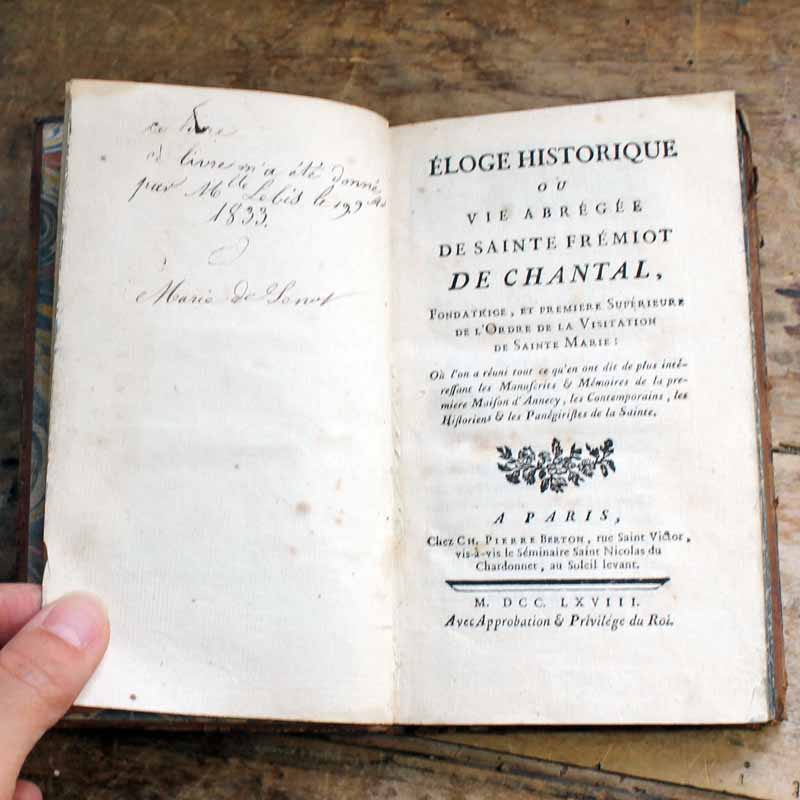 ce livre
ce livre m'a été donné
par Mlle Lebis le
1833.
Marie de
ÉLOGE HISTORIQUE
OU
VIE ABRÉGÉE
DE SAINTE FRÉMIOT
DE CHANTAL,
FONDATRICE, ET PREMIERE SUPÉRIEURE
DE L'ORDRE DE LA VISITATION
DE SAINTE MARIE:
Où l'on a réuni tout ce qu'en ont dit de plus inté-
ressant les Manuscrits & Mémoires de la pre-
miere Maison d'Annecy, les Contemporains, les
Historiens & les Panégiristes de la Sainte.
A PARIS,
Chez CH. PIERRE BERTON, rue Saint Victor,
vis-à-vis le Séminaire Saint Nicolas du
Chardonnet, au Soleil levant.
M. DCC. LXVIII.
Avec Approbation & Privilége du Roi.